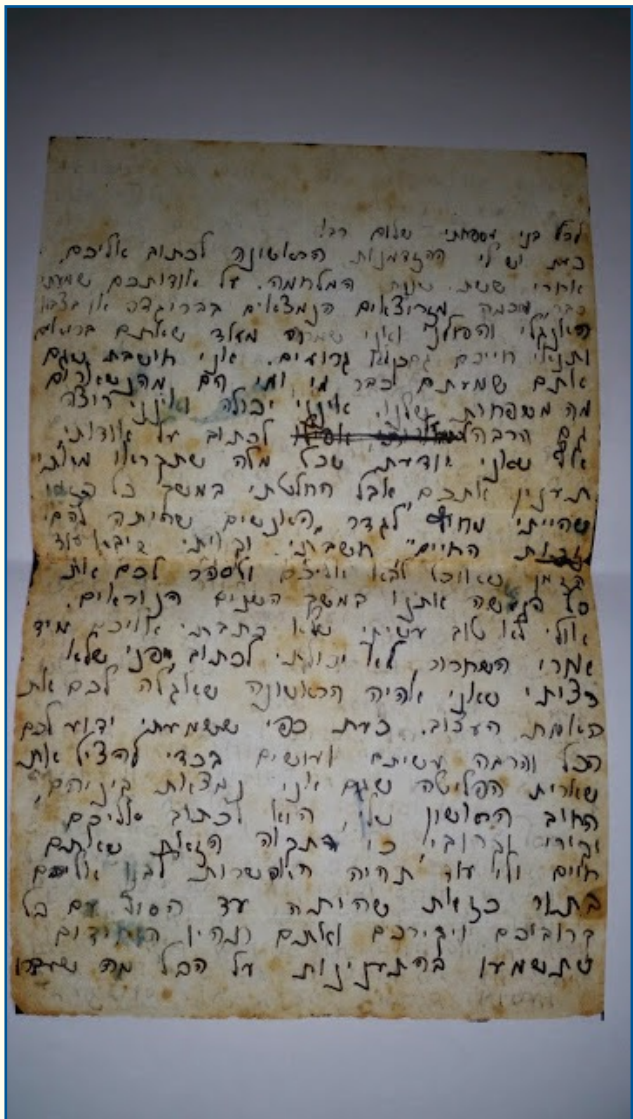 לכל בני משפחתי שלום רב!
כעת יש לי ההזדמנות הראשונה לכתוב אליכם
אחרי שנות המלחמה. על אודותכם שמעתי
כבר מכמה הנמצאים בבריגדה או בצבא
האנגלי והפולני ואני שמחה מאד שאתם בריאים
חייכם גרועים. אני חושבת שגם
אתם שמעתם כבר מי ומי הם מהנשארים
מה ממשפחות שלנו. אינני יכולה ואינני רוצה
גם הרבה לכתוב על אודותי
אני יודעת שכל מלה שתקראו
תענין אתכם אבל החלטתי במשך כל
שהייתי לגדר "האנשים שהיתה להם
זכות החיים" חשבתי
הזמן שאוכל לבא אליכם ולספר לכם את
כל הנעשה אתנו במשך השנים הנוראים.
אולי לא טוב עשיתי שלא כתבתי אליכם מיד
אחרי השחרור לא יכולתי לכתוב מפני שלא
רציתי שאני אהיה הראשונה שאגלה לכם את
האמת העצוב. כעת כפי ששמעתי ידוע לכם
הכל והרבה עשיתם ועושים בכדי להציל את
שארית הפליטה שגם אני נמצאת ביניהם,
החוב הראשון שלי, הוא לכתוב אליכם
יקירי וקרובי כי התקוה הזאת שאתם
חיים ולי עוד תהיה האפשרות לבוא אליכם
בתור כזאת שהיתה עד הסוף עם כל
קרוביכם ויקירכם ואתם תהיו
שתשמעו בהתענינות על הכל מה שעברו